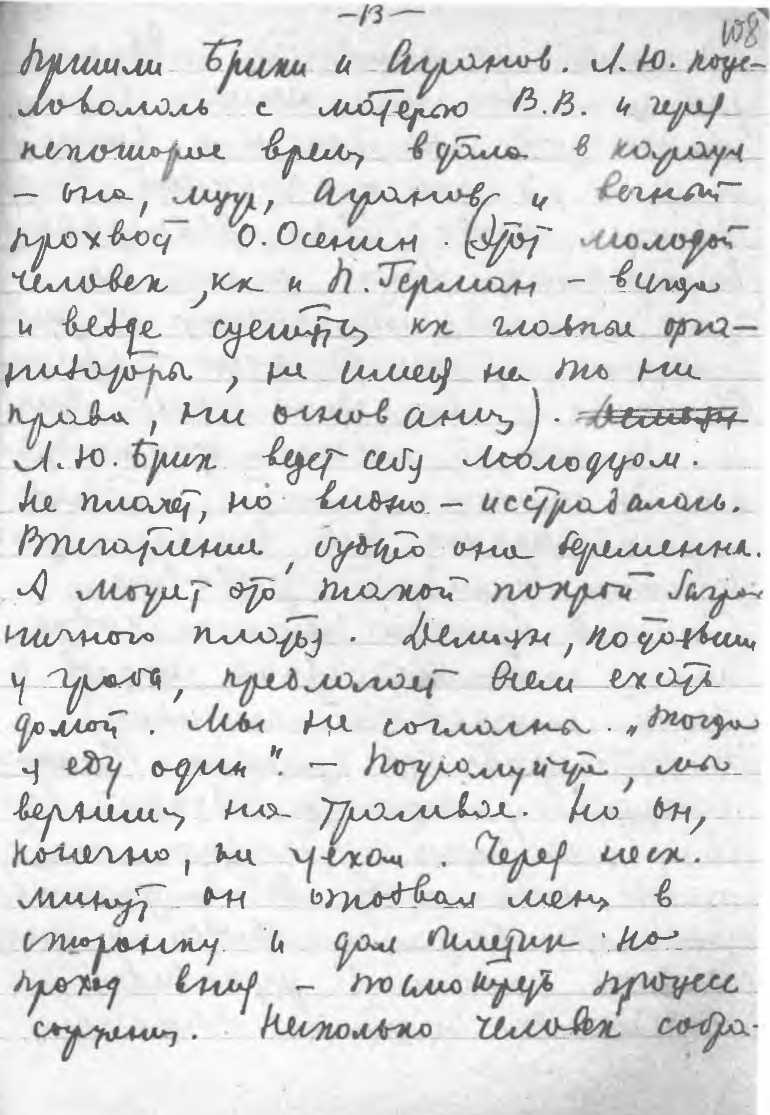 —13—
108
Пришли Брики и Агранов. Л.Ю. поце-
ловалась с матерью В.В. и через
некоторое время встала в караул
— она, муж, Агранов и вечный
прохвост О.Осенин. (Этот молодой
человек, кк и П.Герман — всегда
и везде суетятся кк главные орга-
низаторы, не имея на то ни
права, ни основания). Демьян
Л.Ю.Брик ведет себя молодцом.
Не плачет, но видно — исстрадалась.
Впечатление, будто она беременна.
А может это такой покрой загра-
ничного платья. Демьян, постоявши
у гроба, предлагает всем ехать
домой. Мы не согласны. „Тогда
я еду один". — Пожалуйста, мы
вернемся на трамвае. Но он,
конечно, не уехал. Через неск.
минут он отозвал меня в
сторонку и дал билетик на
проход вниз — посмотреть процесс
сожжения. Несколько человек собра-